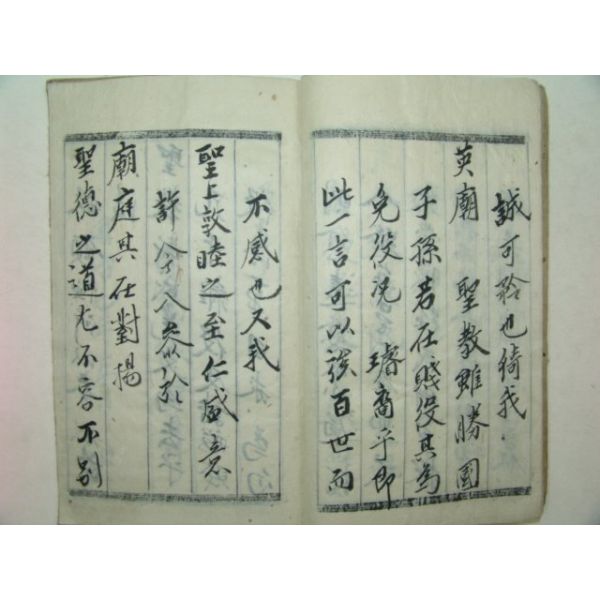 誠可矜也猗我
英廟 聖敎雖勝國
子孫若在賤役其爲
免役况 璿裔乎即
此一言可以 百世而
不感也又我
聖上敦睦之至仁盛意
許 入叅於
廟庭其在對揚
聖德之道尤不容不別